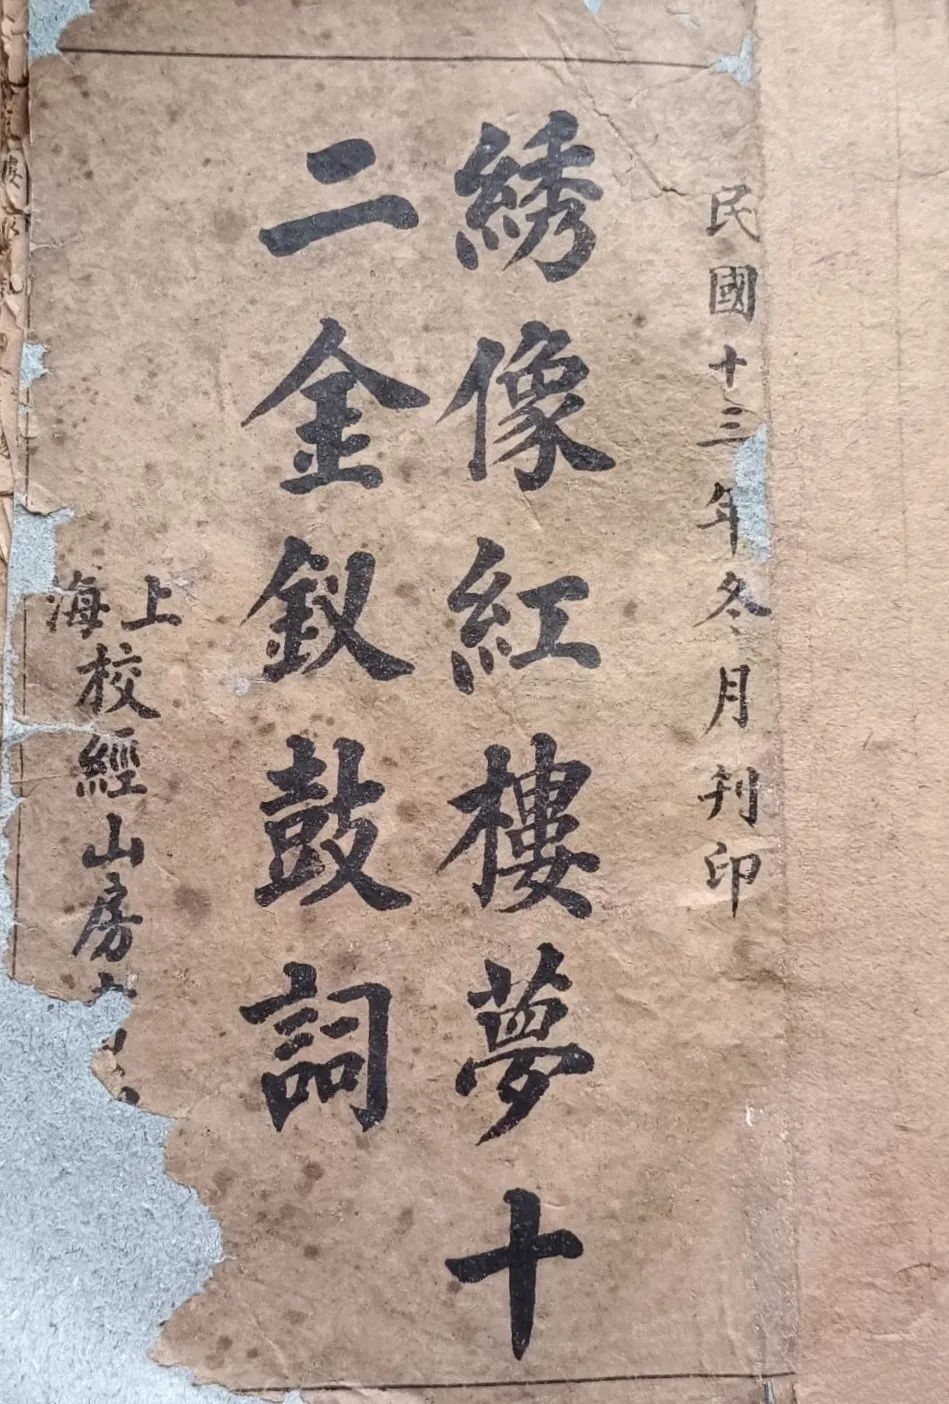 民國十三年冬月刊印
綉像紅樓夢十
二金釵鼓詞
上海
校經山房